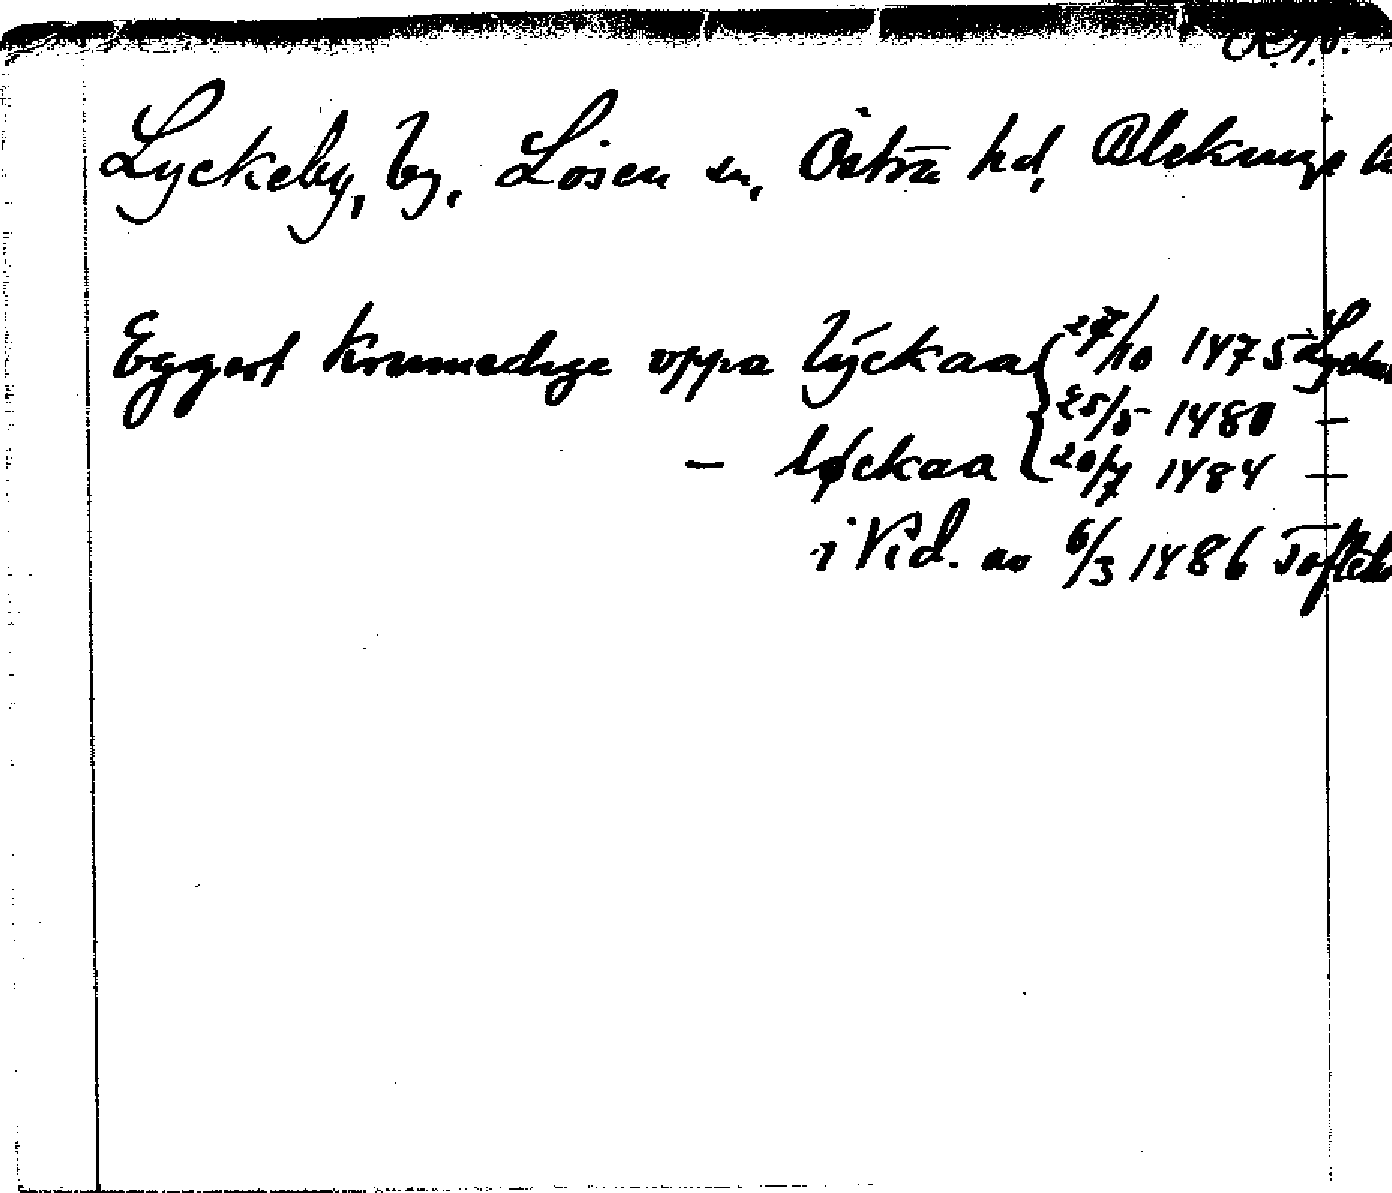 Lyckeby, by, Lösen sn, Östra hd, Blekinge
Eggert Krummedyge vppa lyckaa { 27/10 1475
25/5 1480 —
— løckaa 20/7 1484 —
i Vid. av 6/3 1486